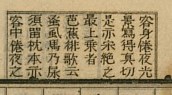 客身倦夜光
景寫得真切
是亦朱絶之
最上乘者
芭蕉排歌云
蚤虱馬乃尿
須留枕本亦
客中倦夜之